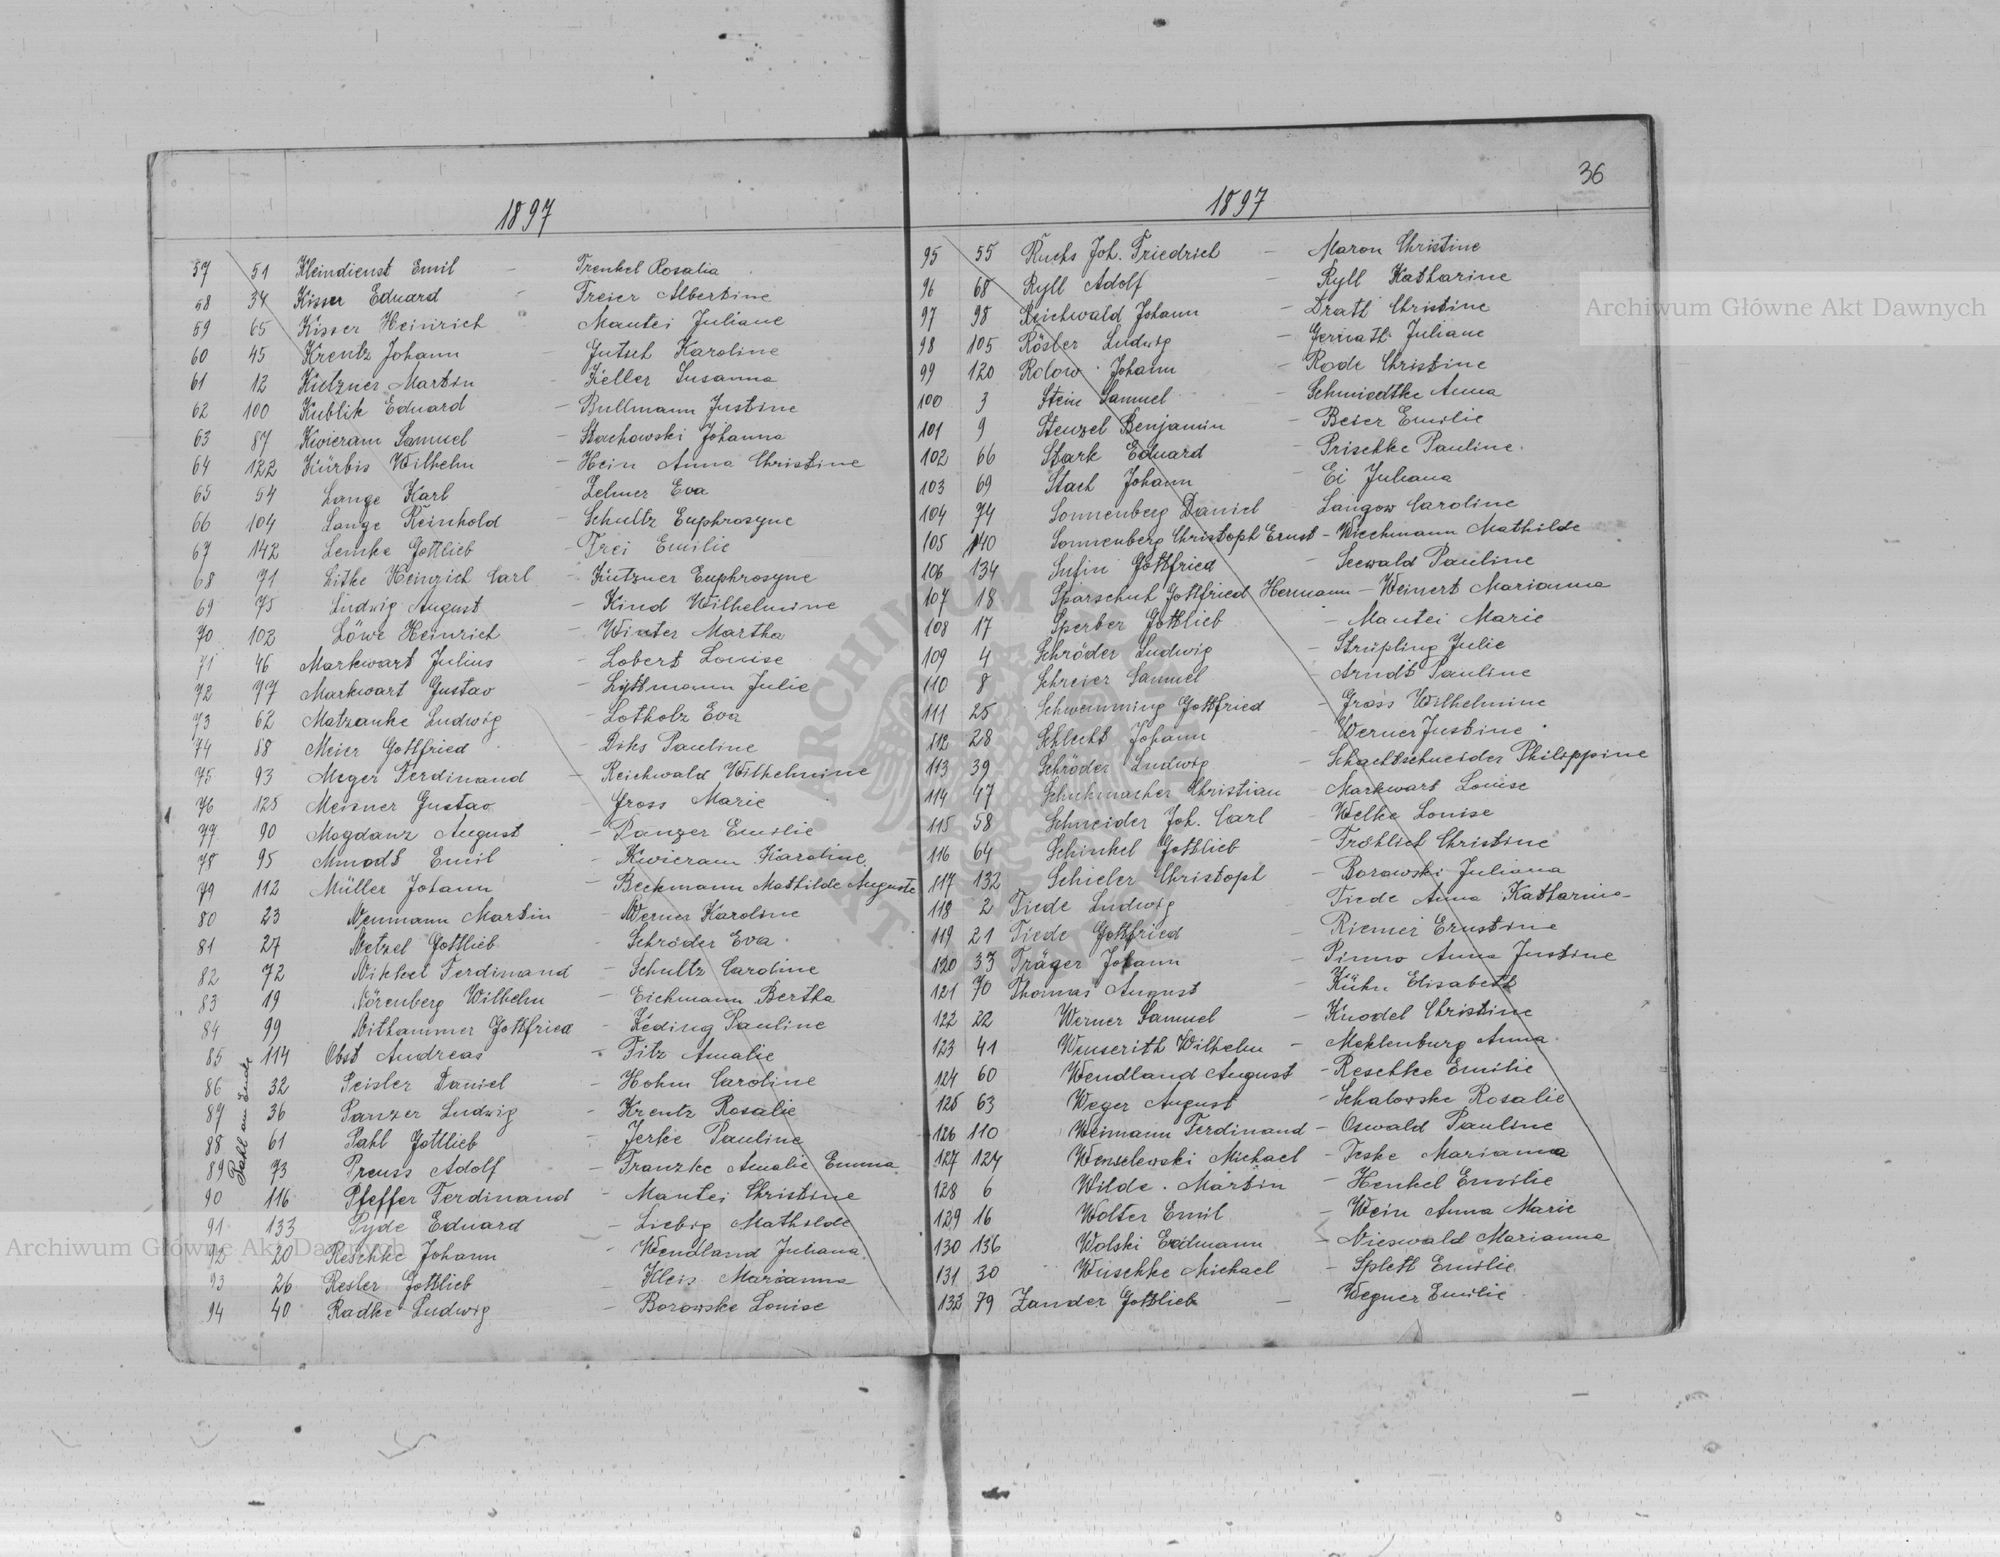 36
1897
57 51 Kleindienst Emil - Trenkel Rosalia
58 34 Kisser Eduard - Freier Albertine
59 65 Kisser Heinrich Mantei Juliane
60 45 Krentz Johann - Gutsch Karoline
61 12 Kutzner Martin - Keller Susanna
62 100 Kublik Eduard - Bullmann Justine
63 87 Kwieram Samuel - Stachowski Johanna
64 122 Kürbis Wilhelm - Hein Anna Christine
65 54 Lange Karl - Zelmer Eva
66 104 Lange Reinhold - Schultz Euphrosyne
67 142 Lemke Gottlieb - Frei Emilie
68 71 Litke Heinrich Carl - Kutzner Euphrosyne
69 75 Ludwig August - Kind Wilhelmine
70 102 Löwe Heinrich - Winter Martha
71 46 Markwart Julius - Lobert Louise
72 77 Markwart Gustav - Lyttmann Julie
73 62 Matzanke Ludwig - Lotholz Eva
74 88 Meier Gottfried - Diks Pauline
75 93 Meyer Ferdinand - Reichwald Wilhelmine
76 125 Meisner Gustav - Gross Marie
77 90 Mogdanz August - Panzer Emilie
78 95 Mmodt Emil - Kwieram Karoline
79 112 Müller Johann - Beckmann Mathilde Auguste
80 23 Neumann Martin - Werner Karoline
81 27 Netzel Gottlieb - Schröder Eva
82 72 Nikkel Ferdinand - Schultz Caroline
83 19 Nörenberg Wilhelm - Eichmann Bertha
84 99 Nithammer Gottfried - Keding Pauline
85 114 Obst Andreas - Fitz Amalie
86 32 Peisler Daniel - Hohm Caroline
87 36 Panzer Ludwig - Krentz Rosalie
88 61 Pahl Gottlieb - Jerke Pauline
89 73 Preuss Adolf - Franzke Amalie Emma
90 116 Pfeffer Ferdinand - Mantei Christine
91 133 Pyde Eduard - Liebig Mathilde
92 20 Reschke Johann - Wendland Juliana
93 26 Resler Gottlieb - Kleis Marianna
94 40 Radke Ludwig - Borowske Louise
Pahl am Ende
1897
95 55 Ruchs Joh. Friedrich - Maron Christine
96 68 Ryll Adolf - Ryll Katharine
97 98 Reichwald Johann - Dratt Christine
98 105 Rösler Ludwig - Juliane
99 120 Rolow Johann - Rode Christine
100 3 Stein Samuel - Schmiedtke Anna
101 9 Stenzel Benjamin - Beser Emilie
102 66 Stark Eduard - Prischke Pauline.
103 69 Stach Johann - Ei Juliana
104 74 Sonnenberg Daniel Langow Caroline
105 140 Sonnenberg Christoph Ernst - Wiechmann Mathilde
106 134 Sufin Gottfried - Seewald Pauline
107 18 Sparschuh Gottfried Hermann - Weinert Marianna
108 17 Sperber Gottlieb - Mantei Marie
109 4 Schröder Ludwig - Strüpling Julie
110 8 Schreier Samuel - Arndt Pauline
111 25 Schwemming Gottfried - Gross Wilhelmine
112 28 Schlecht Johann - Werner Justine
113 39 Schröder Ludwig - Schachtschneider Philippine
114 47 Schuhmacher Christian - Markwart Louise
115 58 Schneider Joh. Carl - Welke Louise
116 64 Schinkel Gottlieb - Fröhlich Christine
117 132 Schieler Christoph - Borowski Juliana
118 2 Tiede Ludwig Tiede Anna Katharina
119 21 Tiede Gottfried - Riemer Ernstine
120 33 Träger Johann - Pinno Anna Justine
121 70 Thomas August - Kühn Elisabeth
122 22 Werner Samuel - Knodel Christine
123 41 Wenserith Wilhelm - Meklenburg Anna
124 60 Wendland August - Reschke Emilie
125 63 Weger August - Schalowske Rosalie
126 110 Weimann Ferdinand - Oswald Pauline
127 124 Wenselewski Michael - Teske Marianna
128 6 Wilde Martin - Henkel Emilie
129 16 Wolter Emil - Wein Anna Marie
130 136 Wolski Erdmann - Nieswald Marianna
131 30 Wuschke Michael - Splett Emilie
132 79 Zander Gottlieb - Wegner Emilie
Archiwum Główne Akt Dawnych
Archiwum Główne Akt Dawnych